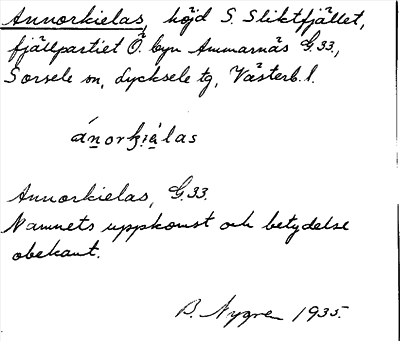 Annorkielas, höjd S. Sliktfjället,
fjällpartiet Ö. byn Ammarnäs G.33.,
Sorsele sn, Lycksele tg, Västerb. l.
ánorkiàlas
Annorkielas, G.33.
Namnets uppkomst och betydelse
obekant.
B. Nygren 1935.